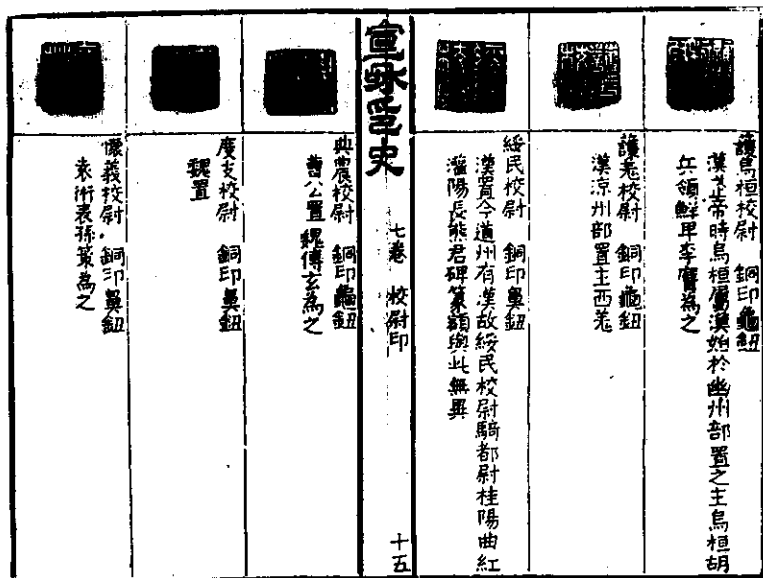 護烏桓校尉　銅印龜鈕
漢武帝時烏桓屬漢始於幽州部置之主烏桓胡
兵領鮮卑李膺為之
護羌校尉　銅印龜鈕
漢涼州部置主西羌
綏民校尉　銅印鼻鈕
漢置今道州有漢故綏民校尉騎都尉桂陽曲紅
灌陽長熊君碑篆額與此無異
宣和印史　七卷　校尉印　十五
典農校尉　銅印龜鈕
曹公置魏傅玄為之
度支校尉　銅印鼻鈕
魏置
懷義校尉　銅印鼻鈕
袁術表孫策為之